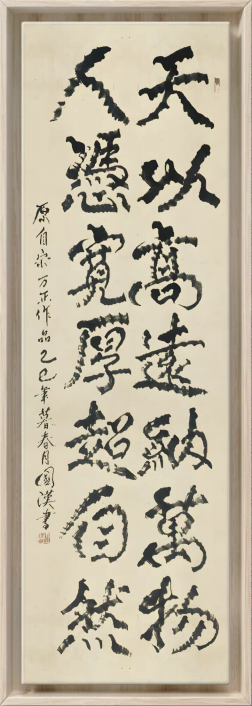 天以高遠納萬物
人憑寬厚超自然
原自宗万正作品乙巳年暮春月國漢書